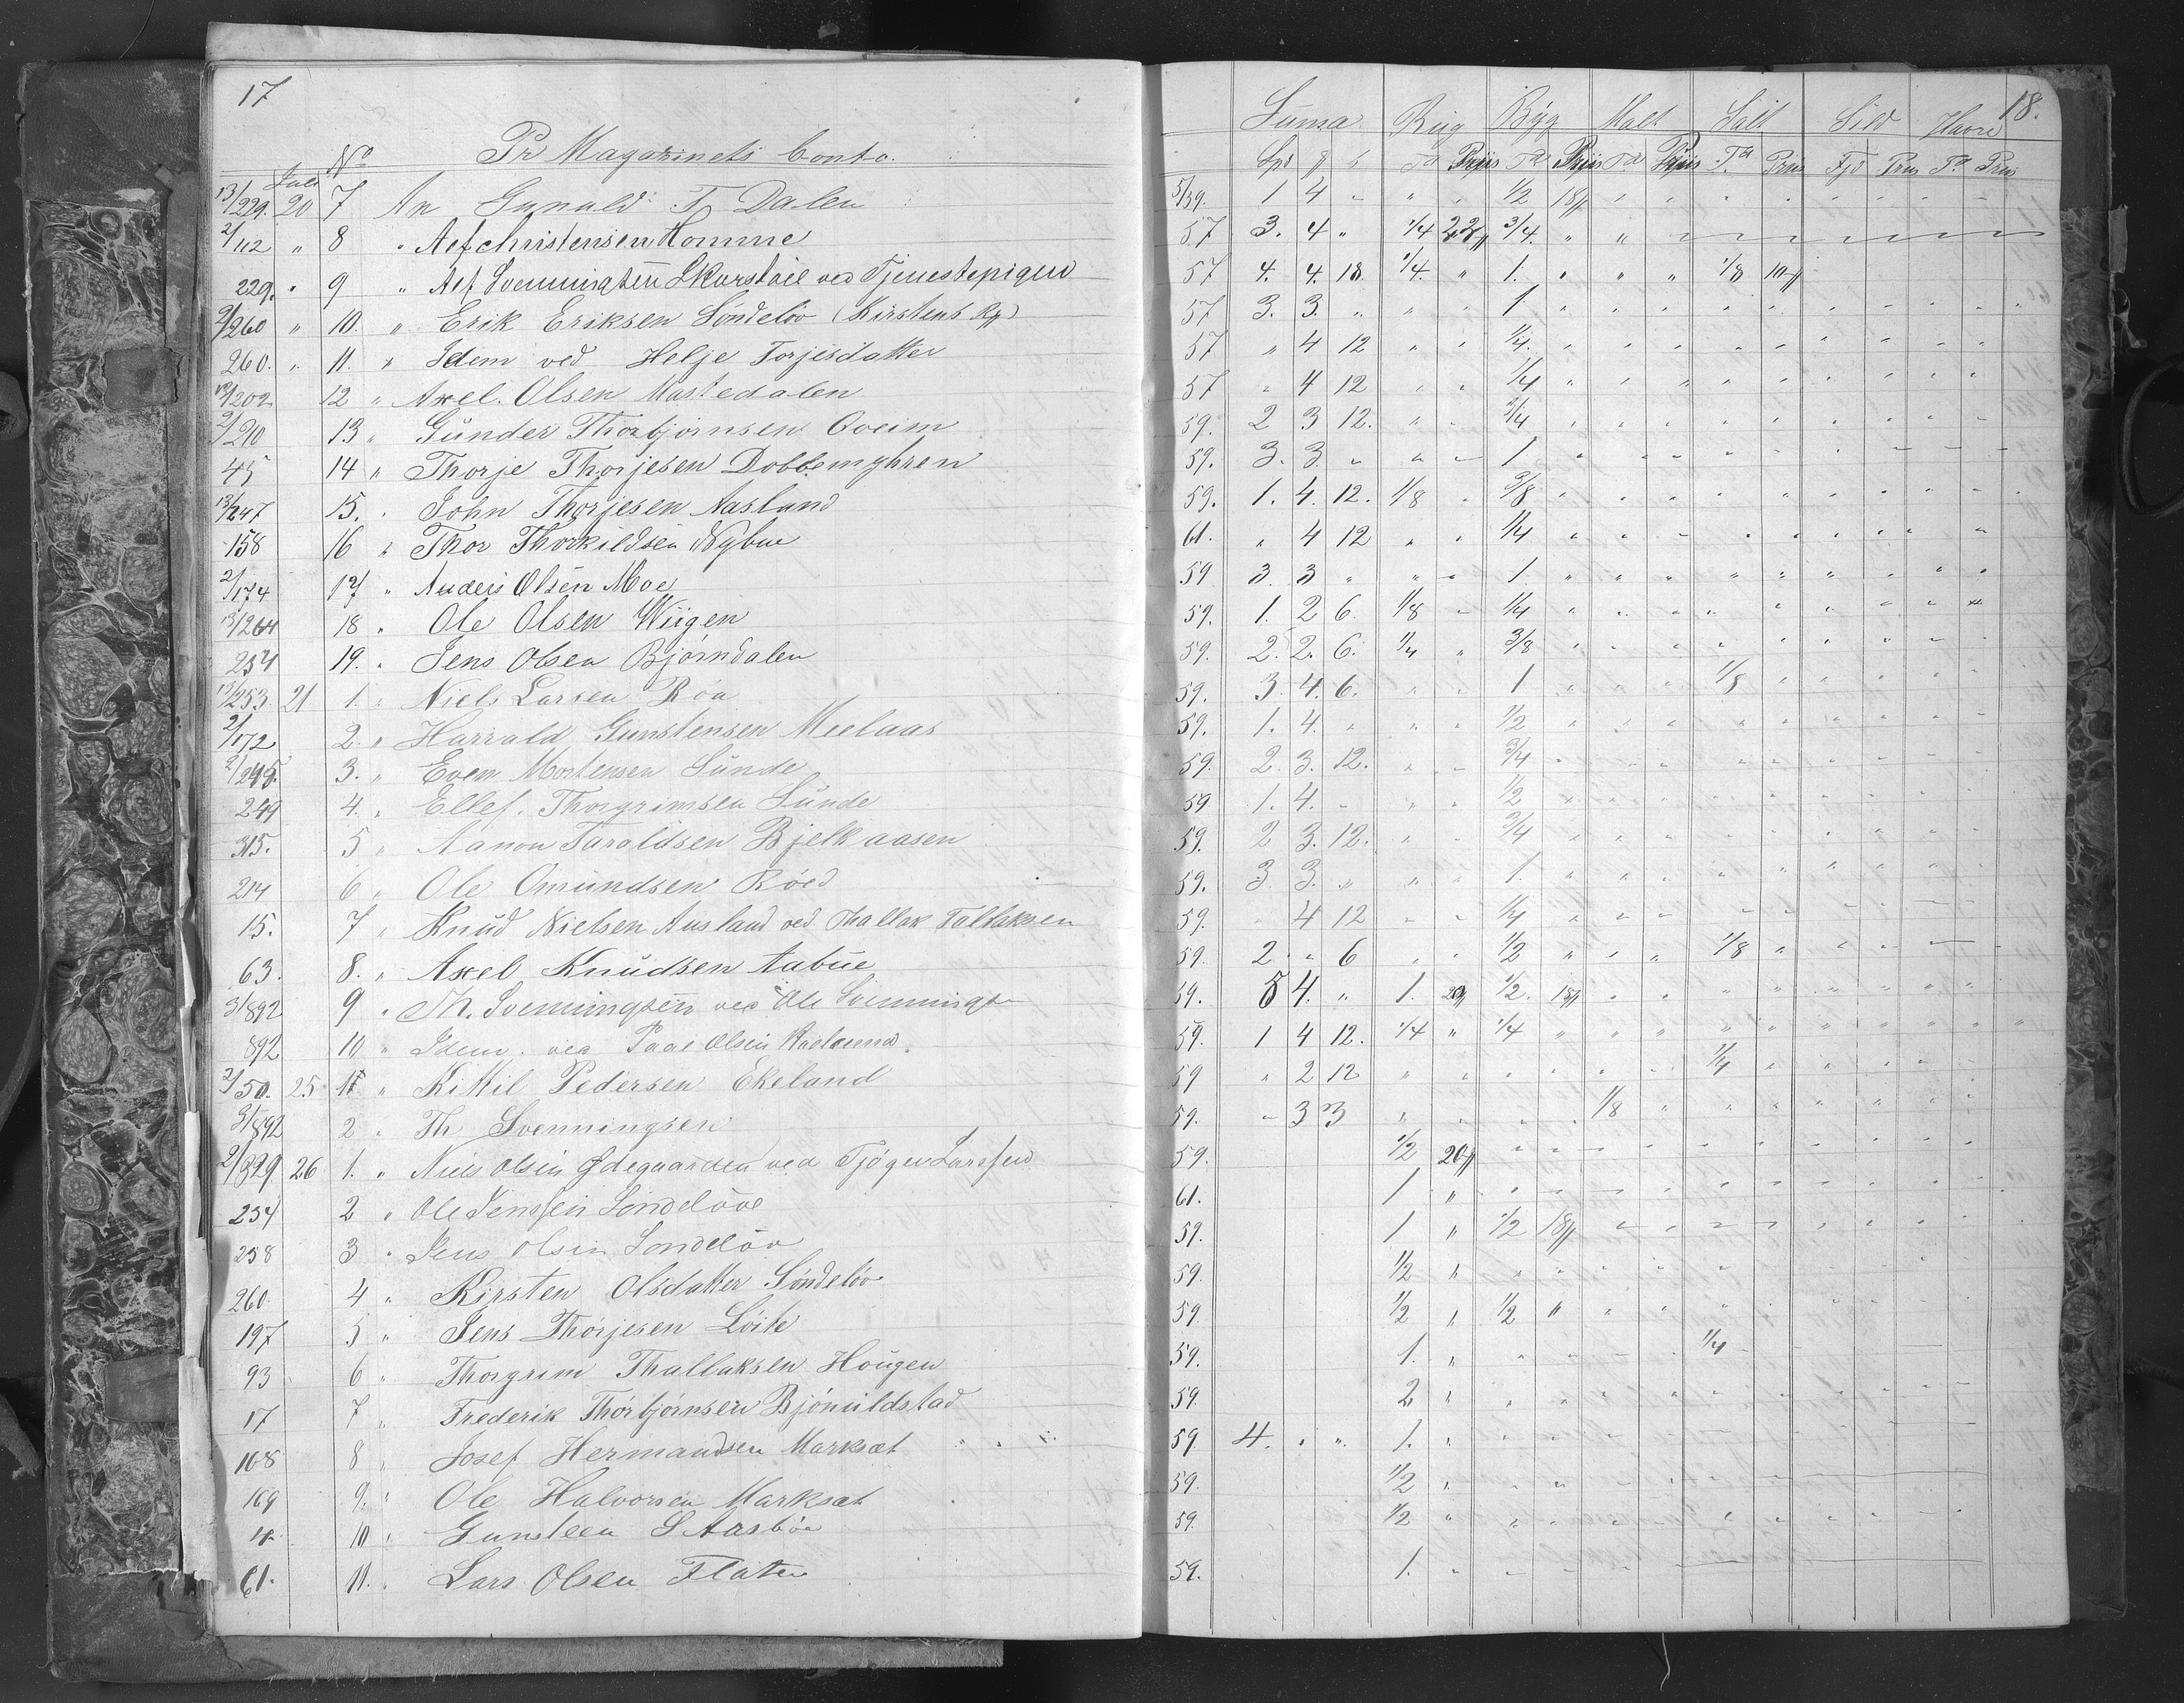 17
No Pr Magazinets Conto.
Juli
13/229. 20 7 An Gunuld T. Dalen
2/112 " 8 " Aef Christensen Homme
229. " 9 " Aef Svenningsen ved Tjenestepigen
2/260 " 10. " Erik Eriksen Sóndelóv (Kirstens Rg)
260. " 11. " Idem ved Helje Torjesdatter
13/202 12 " Axel Olsen Mastedalen
2/210 13 " Gúnder Thorbjornsen Oveim
45 14 " Thorje Thorjesen Dobbemyhren
13/247 15. " John Thorjesen Aasland
158 16 " Thor Thorkildsen Nybue
2/174 17 " Anders Olsen Moe
13/264 18 " Ole Olsen Wiigen
254 19. " Jens Olsen Bjørndalen
13/253 21 1. " Niels Larsen Róa
2/172 2. " Harrald Gunstensen Meelaas
2/245. 3. " Even Mortensen Súnde
249 4. " Ellef. Thorgrimsen Súnde
315. 5 " Aanon Taraldsen Bjelkaasen
214 6 " Ole Omúndsen Róed
15. 7 " Knúd Nielsen Ausland ved Thallak Tallaksen
63. 8. " Axel Knúdsen Aubúe
3/892 9 " Th. Svenningsen ved Ole Svennings
892 10 " Idem. ved Paal Olsen
2/50. 25 1 " Kittil Pedersen Ekeland
3/892 2 " Th Svenningsen
2/829 26 1. " Niels Olsen Ødegaarden ved Tjøgen Larssen
254 2 " Ole Jenssen Sondelöve
258 3 " Jens Olsen Sondelöv
260. 4 " Kirsten Olsdatter Söndelöv
197 5 " Jens Thorjesen Löite
93 6 " Thorgrim Thallaksen Hougen
17 7 " Frederik Thorbjørnsen Bjónúldstad
168 8 " Josef Hermandsen Marksæt
169 9. " Ole Halvorsen Marksæt
14 10 " Gunsteen S Aasböe
61. 11. " Lars Olsen Flaten
18.
Súma Rúg Býg Malt Salt Sild Havre
Spd ß Td Priis Td Priis Td Priis Td Priis Fjd Priis Td Priis
5/59. 1 4 " " " 1/2 18ß
57 3. 4 " 1/4 22ß 3/4. " "
57 4. 4. 18. 1/4. " 1. " " " 1/8 10ß
57 3. 3. " " " 1
57 " 4 12 " " 1/4.
57 " 4 12 " " 1/4
59. 2 3 12. " " 3/4
59. 3. 3. " " " 1
59. 1. 4. 12. 1/8 " 3/8
61. " 4 12 " " 1/4
59 3. 3 " " " 1.
59. 1. 2 6. 1/8 " 1/4
59. 2. 2. 6. 1/4 " 3/8
59. 3. 4. 6. " " 1 " " " 1/8
59. 1. 4. " " " 1/2
59. 2. 3. 12. " " 3/4
59 1. 4. " " " 1/2
59. 2 3. 12. " " 3/4
59. 3. 3. " " " 1.
59. 4 12 " " 1/4
59. 2. " 6 " " 1/2 " " " 1/8
59. 5 4. " 1. 20ß 1/2. 18ß
59. 1 4 12. 1/4 " 1/4
59 " 2 12 " " " " " " 1/4
59. " 3 3 " " " " 1/8
59. 1/2 20ß
61. 1 "
59. 1 " 1/2 18ß
59. 1/2 "
59. 1/2 " 1/2 "
59. 1. " " " " " 1/4
59. 2 "
59. 4. " " 1. "
59. 1/2 "
59. 1/2 "
59. 1.